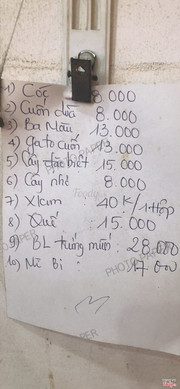 1) Cốc 8.000
2) Cuốn dừa 8.000
3) Ba Màu 13.000
4) gato cuốn 13.000
5) Cây đặc biệt 15.000
6) Cây nhỏ 8.000
7) Xlam 40K/1 Hộp
8) Quế 15.000
9) BL trứng muối: 28.000
10) Mì Bi : 17 000
PHOTO PAPER
PHOTO PAPER
Foody